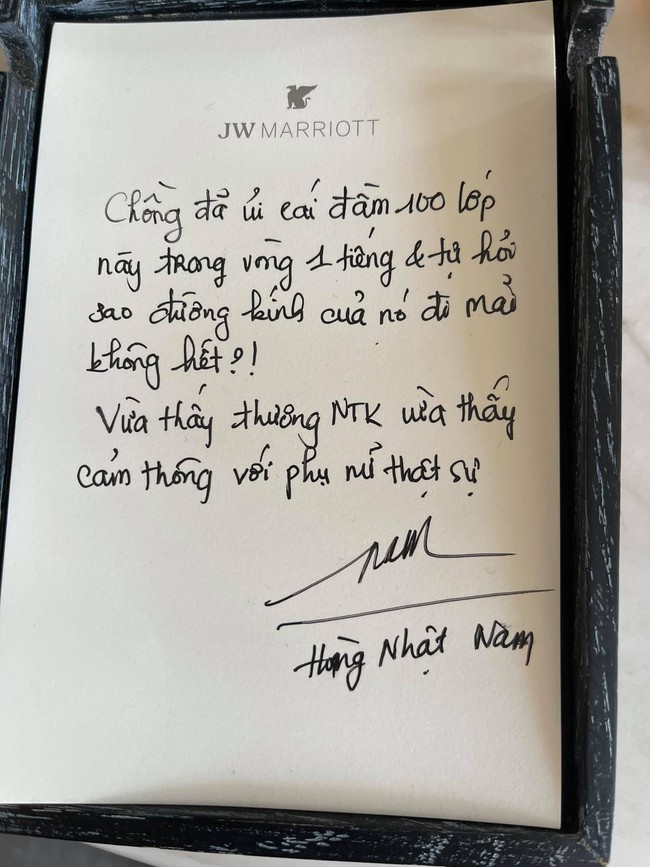 JW MARRIOTT
Chồng đã ủi cái đầm 100 lớp
này trong vòng 1 tiếng & tự hỏi
sao đường kính của nó đi mãi
không hết?!
Vừa thấy thương NTK vừa thấy
cảm thông với phụ nữ thật sự
nam
Hoàng Nhật Nam